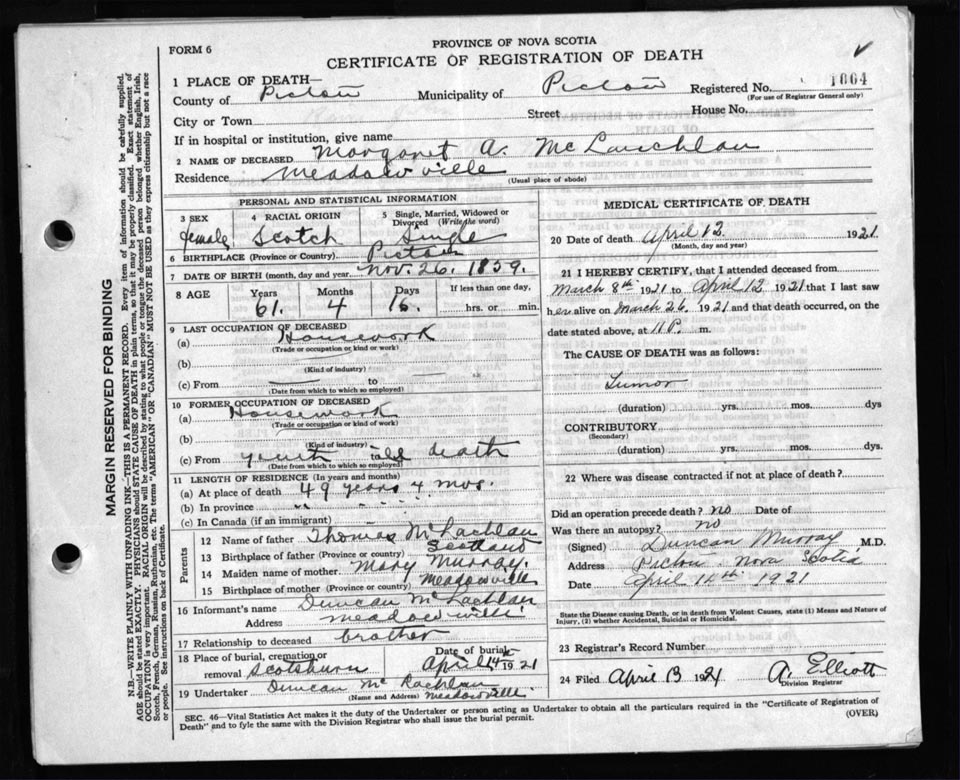 FORM 6
PROVINCE OF NOVA SCOTIA
CERTIFICATE OF REGISTRATION OF DEATH
1 PLACE OF DEATH—
County of Pictou Municipality of Pictou Registered No. 1004
(For use of Registrar General only)
City or Town Street House No.
If in hospital or institution, give name
2 NAME OF DECEASED Margaret A. McLauchlan
Residence Meadowville
(Usual place of abode)
PERSONAL AND STATISTICAL INFORMATION
3 SEX female
4 RACIAL ORIGIN Scotch
5 Single, Married, Widowed or Divorced (Write the word) Single
6 BIRTHPLACE (Province or Country) Pictou
7 DATE OF BIRTH (month, day and year) Nov. 26. 1859.
8 AGE Years 61. Months 4 Days 16. If less than one day, hrs. or min.
9 LAST OCCUPATION OF DECEASED
(a) Housework
(Trade or occupation or kind or work)
(b)
(Kind of industry)
(c) From to
(Date from which to which so employed)
10 FORMER OCCUPATION OF DECEASED
(a) Housework
(Trade or occupation or kind of work)
(b)
(Kind of industry)
(c) From youth till death
(Date from which to which so employed)
11 LENGTH OF RESIDENCE (In years and months)
(a) At place of death 49 years 4 mos.
(b) In province " "
(c) In Canada (if an immigrant)
Parents
12 Name of father Thomas McLachlan
13 Birthplace of father (Province or country) Scotland
14 Maiden name of mother Mary Murray.
15 Birthplace of mother (Province or country) Meadowville
16 Informant's name Duncan McLachlan
Address Meadowville
17 Relationship to deceased brother
18 Place of burial, cremation or removal Scotsburn Date of burial April 14th 1921
19 Undertaker Duncan McLachlan
(Name and Address) Meadowville
MEDICAL CERTIFICATE OF DEATH
20 Date of death April 12. 1921.
(Month, day and year)
21 I HEREBY CERTIFY, that I attended deceased from
March 8th 1921 to April 12 1921 that I last saw
her alive on March 26 1921 and that death occurred, on the
date stated above, at 11 P. m.
The CAUSE OF DEATH was as follows:
Tumor
(duration) yrs. mos. dys
CONTRIBUTORY
(Secondary)
(duration) yrs. mos. dys.
22 Where was disease contracted if not at place of death?
Did an operation precede death? no Date of
Was there an autopsy? no
(Signed) Duncan Murray M.D.
Address Pictou - Nova Scotia
Date April 14th 1921
State the Disease causing Death, or in death from Violent Causes, state (1) Means and Nature of
Injury, (2) whether Accidental, Suicidal or Homicidal.
23 Registrar's Record Number
24 Filed April 13 1921 A. Elliott
Division Registrar
SEC. 46—Vital Statistics Act makes it the duty of the Undertaker or person acting as Undertaker to obtain all the particulars required in the "Certificate of Registration of
Death" and to fyle the same with the Division Registrar who shall issue the burial permit. (OVER)
MARGIN RESERVED FOR BINDING
N.B.—WRITE PLAINLY WITH UNFADING INK—THIS IS A PERMANENT RECORD. Every item of information should be carefully supplied.
AGE should be stated EXACTLY. PHYSICIANS should STATE CAUSE OF DEATH in plain terms, so that it may be properly classified. Exact statement of
OCCUPATION is very important. RACIAL ORIGIN will be described by stating to what people or tongue the deceased person belonged, whether English, Irish,
Scotch, French, German, Russian, Ruthenian, etc. The terms "AMERICAN" OR "CANADIAN" MUST NOT BE USED as they express citizenship but not a race
or people. See instructions on back of Certificate.